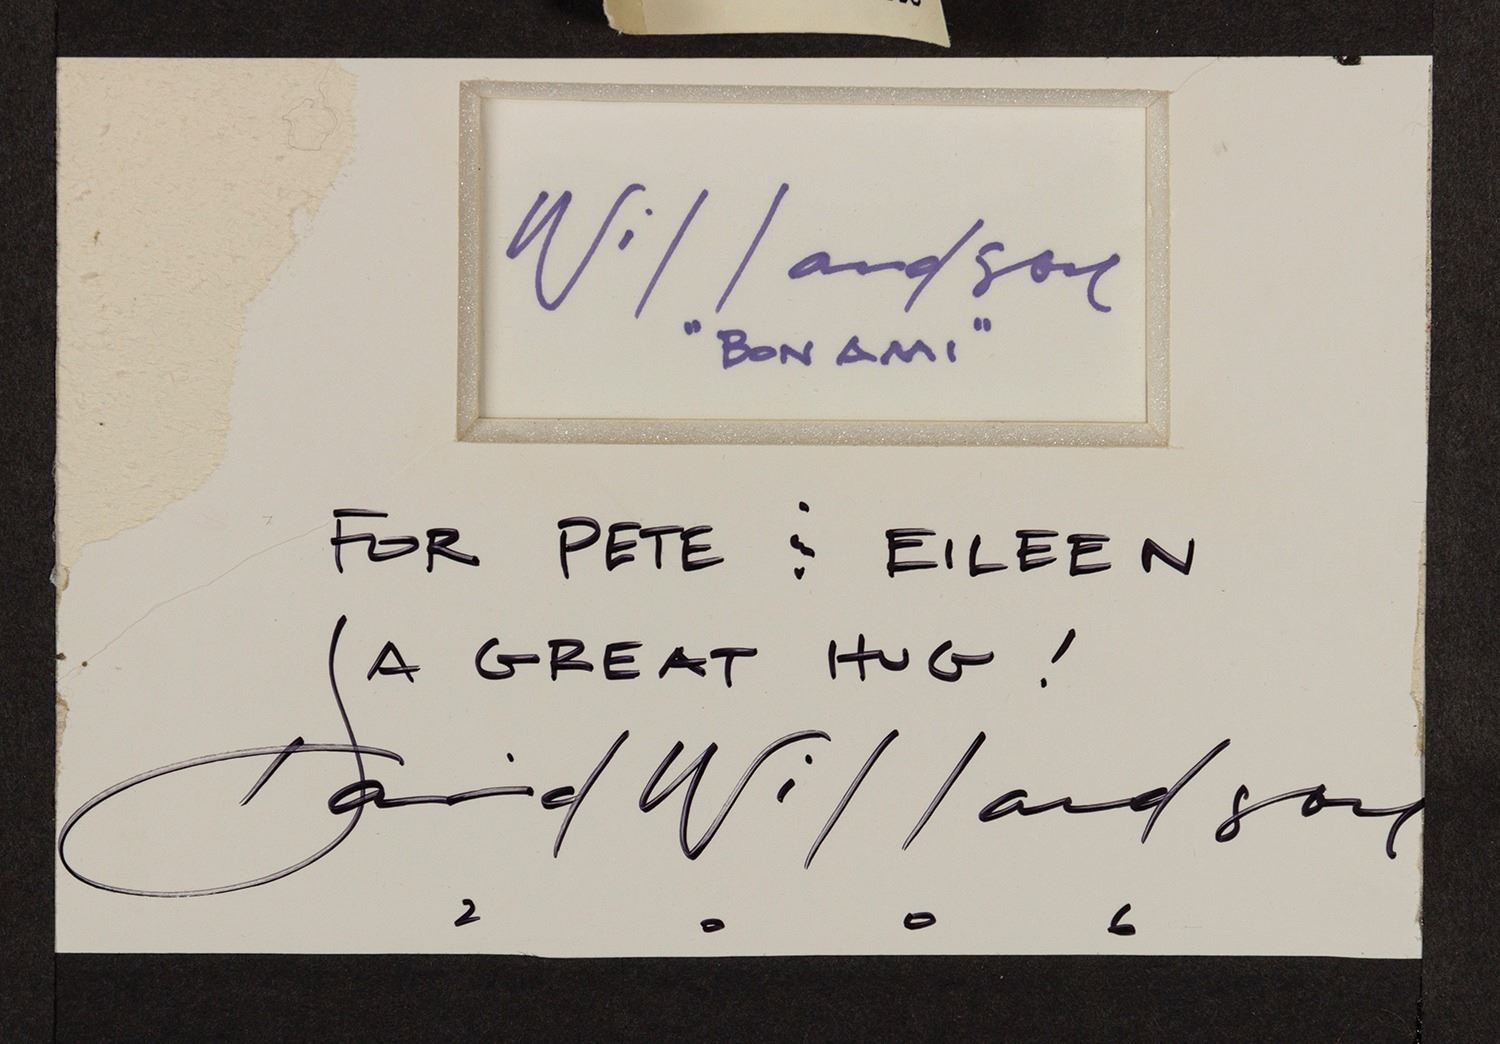 Willardson
"BON AMI"
FOR PETE & EILEEN
A GREAT HUG!
David Willardson
2006